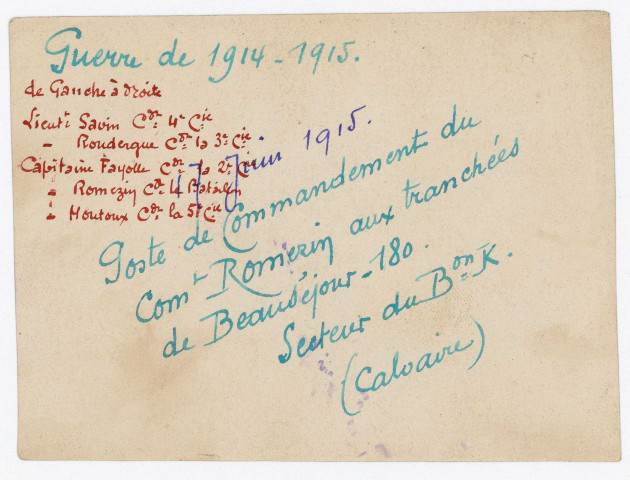 Guerre de 1914-1915.
de Gauche à droite
Lieutt Savin Cdt 4e Cie
- Rouderque Cdt la 3e Cie
Capitaine Fayolle Cdt la 2e Cie
- Romezin Cdt Bataillon
- Moutoux Cdt la 5e Cie
17 Juin 1915.
Poste de Commandement du
Comt Romezin aux tranchées
de Beauséjour-180.
Secteur du Bon K.
(Calvaire)